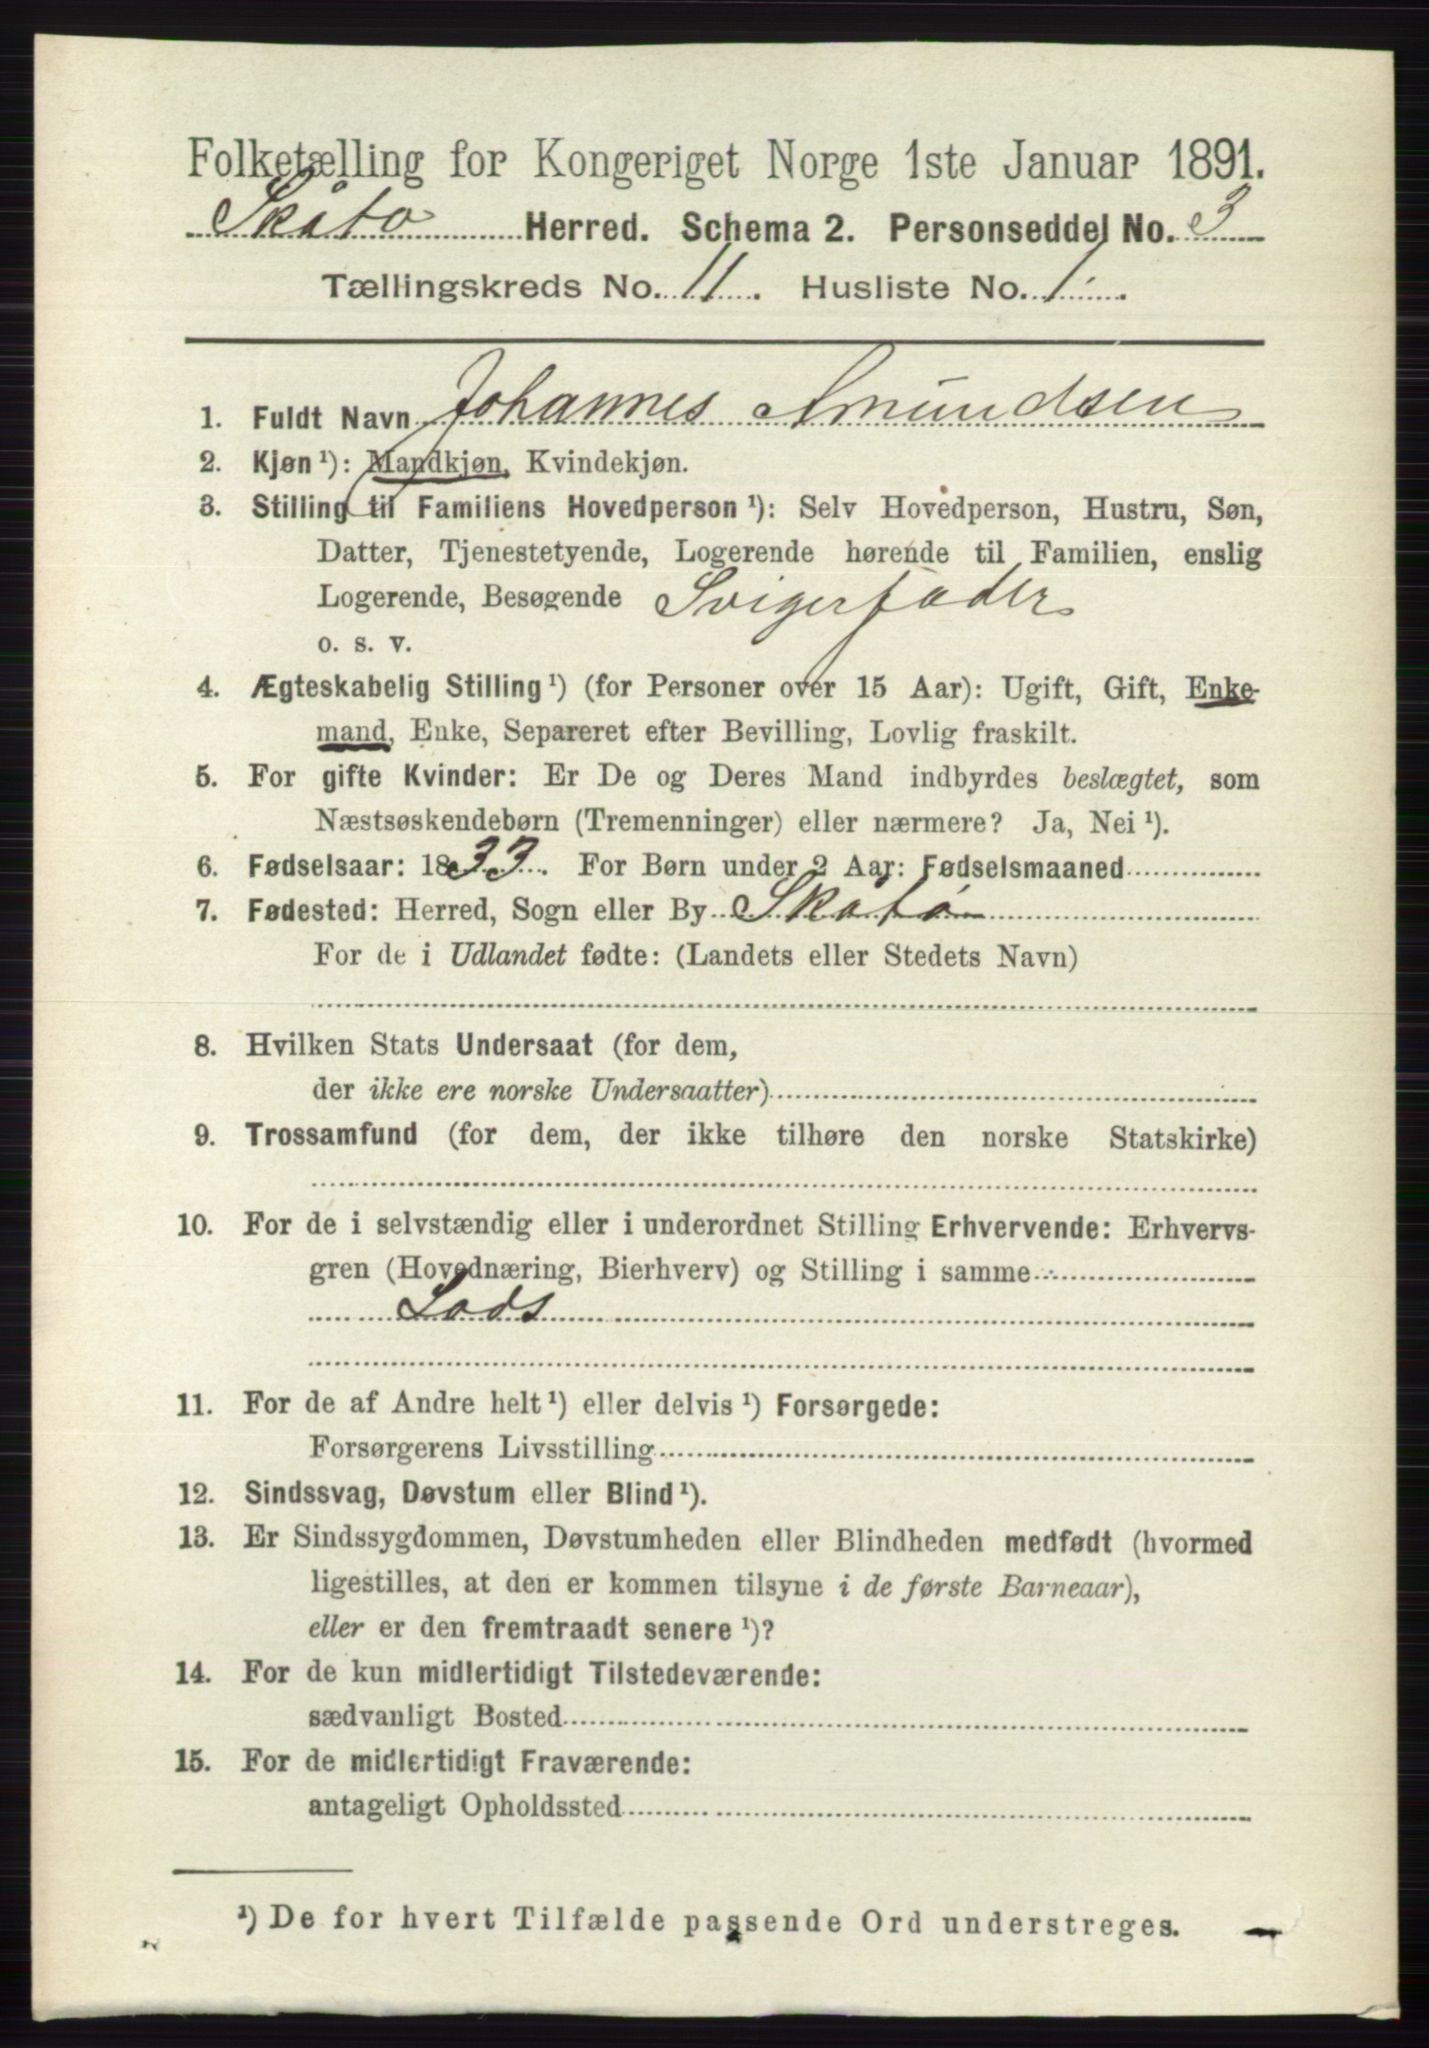 Folketælling for Kongeriget Norge 1ste Januar 1891.
Skåtø Herred. Schema 2. Personseddel No. 3
Tællingskreds No. 11. Husliste No. 1.
1. Fuldt Navn Johannes Amundsen
2. Kjøn ¹): Mandkjøn, Kvindekjøn.
3. Stilling til Familiens Hovedperson ¹): Selv Hovedperson, Hustru, Søn,
Datter, Tjenestetyende, Logerende hørende til Familien, enslig
Logerende, Besøgende Svigerfader
o. s. v.
4. Ægteskabelig Stilling ¹) (for Personer over 15 Aar): Ugift, Gift, Enke-
mand, Enke, Separeret efter Bevilling, Lovlig fraskilt.
5. For gifte Kvinder: Er De og Deres Mand indbyrdes beslægtet, som
Næstsøskendebørn (Tremenninger) eller nærmere? Ja, Nei ¹).
6. Fødselsaar: 1833. For Børn under 2 Aar: Fødselsmaaned
7. Fødested: Herred, Sogn eller By Skåtø
For de i Udlandet fødte: (Landets eller Stedets Navn)
8. Hvilken Stats Undersaat (for dem,
der ikke ere norske Undersaatter)
9. Trossamfund (for dem, der ikke tilhøre den norske Statskirke)
10. For de i selvstændig eller i underordnet Stilling Erhvervende: Erhvervs-
gren (Hovednæring, Bierhverv) og Stilling i samme
Lods
11. For de af Andre helt ¹) eller delvis ¹) Forsørgede:
Forsørgerens Livsstilling
12. Sindssvag, Døvstum eller Blind ¹).
13. Er Sindssygdommen, Døvstumheden eller Blindheden medfødt (hvormed
ligestilles, at den er kommen tilsyne i de første Barneaar),
eller er den fremtraadt senere ¹)?
14. For de kun midlertidigt Tilstedeværende:
sædvanligt Bosted
15. For de midlertidigt Fraværende:
antageligt Opholdssted
¹) De for hvert Tilfælde passende Ord understreges.